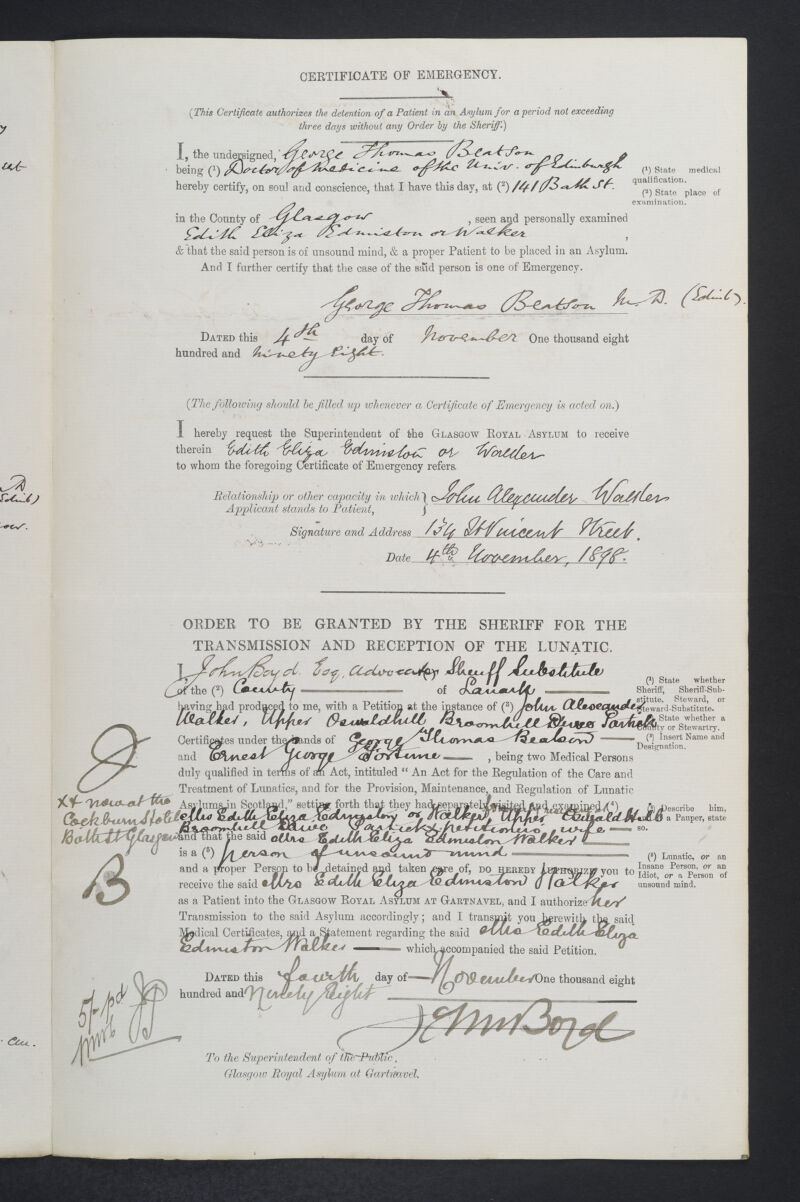 CERTIFICATE OF EMERGENCY.
(This Certificate authorizes the detention of a Patient in an Asylum for a period not exceeding
three days without any Order by the Sheriff.)
I, the undersigned, George Thomas Beatson
being (1) Doctor of Medicine of the Univ. of Edinburgh
hereby certify, on soul and conscience, that I have this day, at (2) 141 Bath St.
in the County of Glasgow, seen and personally examined
Edith Eliza Edmiston or Walker,
& that the said person is of unsound mind, & a proper Patient to be placed in an Asylum.
And I further certify that the case of the said person is one of Emergency.
George Thomas Beatson M.D. (Edinb).
DATED this 4th day of November One thousand eight
hundred and ninety eight.
(1) State medical
qualification.
(2) State place of
examination.
(The following should be filled up whenever a Certificate of Emergency is acted on.)
I hereby request the Superintendent of the GLASGOW ROYAL ASYLUM to receive
therein Edith Eliza Edmiston or Walker
to whom the foregoing Certificate of Emergency refers.
Relationship or other capacity in which } John Alexander Walker
Applicant stands to Patient, }
Signature and Address 134 St Vincent Street.
Date 4th November, 1898.
ORDER TO BE GRANTED BY THE SHERIFF FOR THE
TRANSMISSION AND RECEPTION OF THE LUNATIC.
I, John Boyd Esq. Advocate, Sheriff Substitute
of the (2) County of Lanark
having had produced to me, with a Petition at the instance of (3) John Alexander
Walker, Upper Oswaldhill Broomhill Drive Partick
Certificates under the hands of George Thomas Beatson
and Ernest George Fortune, being two Medical Persons
duly qualified in terms of an Act, intituled "An Act for the Regulation of the Care and
Treatment of Lunatics, and for the Provision, Maintenance, and Regulation of Lunatic
Asylums in Scotland," setting forth that they had separately visited and examined (4)
Mrs Edith Eliza Edmiston or Walker, Upper Oswald Hill
Broomhill Drive Partick x petitioners wife
and that the said Mrs Edith Eliza Edmiston Walker
is a (5) person of unsound mind
and a proper Person to be detained and taken care of, DO HEREBY AUTHORIZE you to
receive the said Mrs Edith Eliza Edmiston Walker
as a Patient into the GLASGOW ROYAL ASYLUM AT GARTNAVEL, and I authorize her
Transmission to the said Asylum accordingly; and I transmit you herewith the said
Medical Certificates, and a Statement regarding the said Mrs Edith Eliza
Edmiston Walker which accompanied the said Petition.
DATED this fourth day of November One thousand eight
hundred and Ninety Eight
Jn Boyd
To the Superintendent of the Public,
Glasgow Royal Asylum at Gartnavel.
(1) State whether
Sheriff, Sheriff-Sub-
stitute, Steward, or
Steward-Substitute.
(2) State whether a
County or Stewartry.
(3) Insert Name and
Designation.
(4) Describe him,
if a Pauper, state
so.
(5) Lunatic, or an
Insane Person, or an
Idiot, or a Person of
unsound mind.
x now at the
Cockburn Hotel
Bath St Glasgow
B
5/- pd